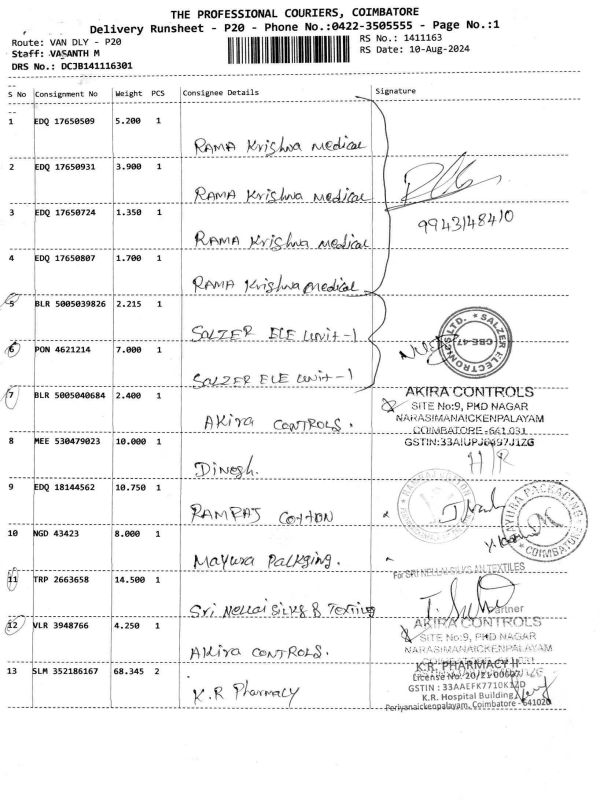 THE PROFESSIONAL COURIERS, COIMBATORE
Delivery Runsheet - P20 - Phone No.:0422-3505555 - Page No.:1
Route: VAN DLY - P20
RS No.: 1411163
Staff: VASANTH M
RS Date: 10-Aug-2024
DRS No.: DCJB141116301
S No Consignment No Weight PCS Consignee Details Signature
1 EDQ 17650509 5.200 1
RAMA Krishna medical
2 EDQ 17650931 3.900 1
RAMA Krishna medical
9943148410
3 EDQ 17650724 1.350 1
RAMA Krishna medical
4 EDQ 17650807 1.700 1
RAMA Krishna medical
5 BLR 5005039826 2.215 1
SALZER ELE Unit-1
SALZER ELECTRONICS LTD. CBE-47
6 PON 4621214 7.000 1
SALZER ELE Unit-1
7 BLR 5005040684 2.400 1
AKira CONTROLS.
AKIRA CONTROLS
SITE No:9, PKD NAGAR
NARASIMANAICKENPALAYAM
COIMBATORE-641 031
GSTIN:33AIUPJ0497J1ZG
8 MEE 530479023 10.000 1
Dinesh.
H/R
9 EDQ 18144562 10.750 1
RAMRAJ COTTON
10 NGD 43423 8.000 1
Mayura Packging.
MAYURA PACKAGING
COIMBATORE
11 TRP 2663658 14.500 1
Sri Nellai Silks & Textiles
For SRI NELLAI SILKS AN TEXTILES
Partner
12 VLR 3948766 4.250 1
AKira CONTROLS.
AKIRA CONTROLS
SITE No:9, PKD NAGAR
NARASIMANAICKENPALAYAM
13 SLM 352186167 68.345 2
K.R Pharmacy
K.R. PHARMACY II
GSTIN : 33AAEFK7710K1ZD
K.R. Hospital Building
Periyanaickenpalayam, Coimbatore - 641020